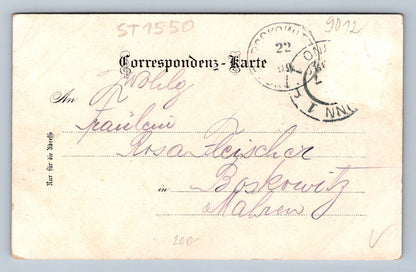 ST1550
9012
BOSKOWITZ
22
99
Correspondenz-Karte
An
Wohlg
Fräulein
Rosa Fleischer
in Boskowitz
Mahren
Nur für die Adresse
200
V